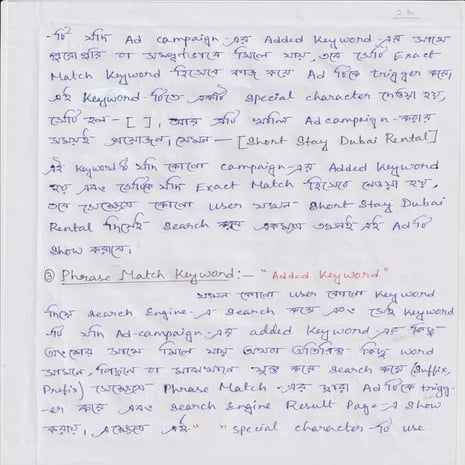 22
-টি যদি Ad campaign-এর Added Keyword-এর সাথে
পুরোপুরি বা সম্পূর্ণভাবে মিলে যায়, তবে সেটি Exact
Match Keyword হিসেবে কাজ করে Ad টিকে trigger করে,
এই Keyword-টিতে একটি special character দেওয়া হয়,
সেটি হল- [ ], আর এটি Ad campaign-করার
সময়ই প্রয়োজন, যেমন— [Short Stay Dubai Rental]
এই Keywordটি যদি কোনো campaign-এর Added Keyword
হয় এবং সেটিকে যদি Exact Match-হিসেবে নেওয়া হয়,
তবে সেক্ষেত্রে কোনো user যখন Short Stay Dubai
Rental লিখেই Search করে একমাত্র তখনই এই Ad টি
Show করাবে।
③ Phrase Match Keyword:- "Added Keyword"
যখন কোনো user কোনো Keyword
দিয়ে Search Engine-এ Search করে এবং সেই Keyword
-টি যদি Ad-campaign-এর added Keyword এর কিছু
অংশের সাথে মিলে যায় অথবা অতিরিক্ত কিছু word
সামনে, পিছনে বা মাঝখানে যুক্ত করে Search করে (Suffix,
Prefix) সেক্ষেত্রে Phrase Match-এর দ্বারা Ad টিকে trigg-
er করে এবং Search Engine Result Page-এ Show
করায়, এক্ষেত্রে এই " " special character-টি use